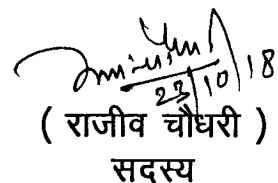 23/10/18
( राजीव चौधरी )
सदस्य